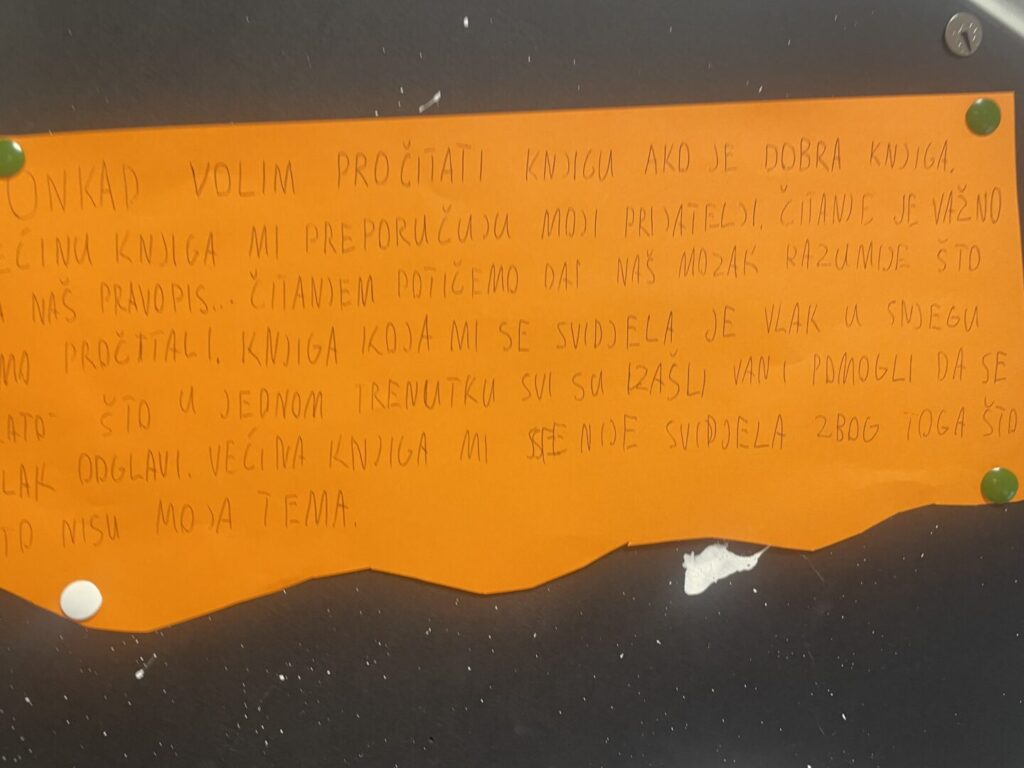 VOLIM PROČITATI KNJIGU AKO JE DOBRA KNJIGA.
KNJIGA MI PREPORUČUJU MOJI PRIJATELJI. ČITANJE JE VAŽNO
NAŠ PRAVOPIS... ČITANJEM POTIČEMO DA NAŠ MOZAK RAZUMIJE ŠTO
PROČITALI. KNJIGA KOJA MI SE SVIDJELA JE VLAK U SNJEGU
ŠTO U JEDNOM TRENUTKU SVI SU IZAŠLI VAN I POMOGLI DA SE
ODGLAVI. VEĆINA KNJIGA MI SE NIJE SVIDJELA ZBOG TOGA ŠTO
NISU MOJA TEMA.